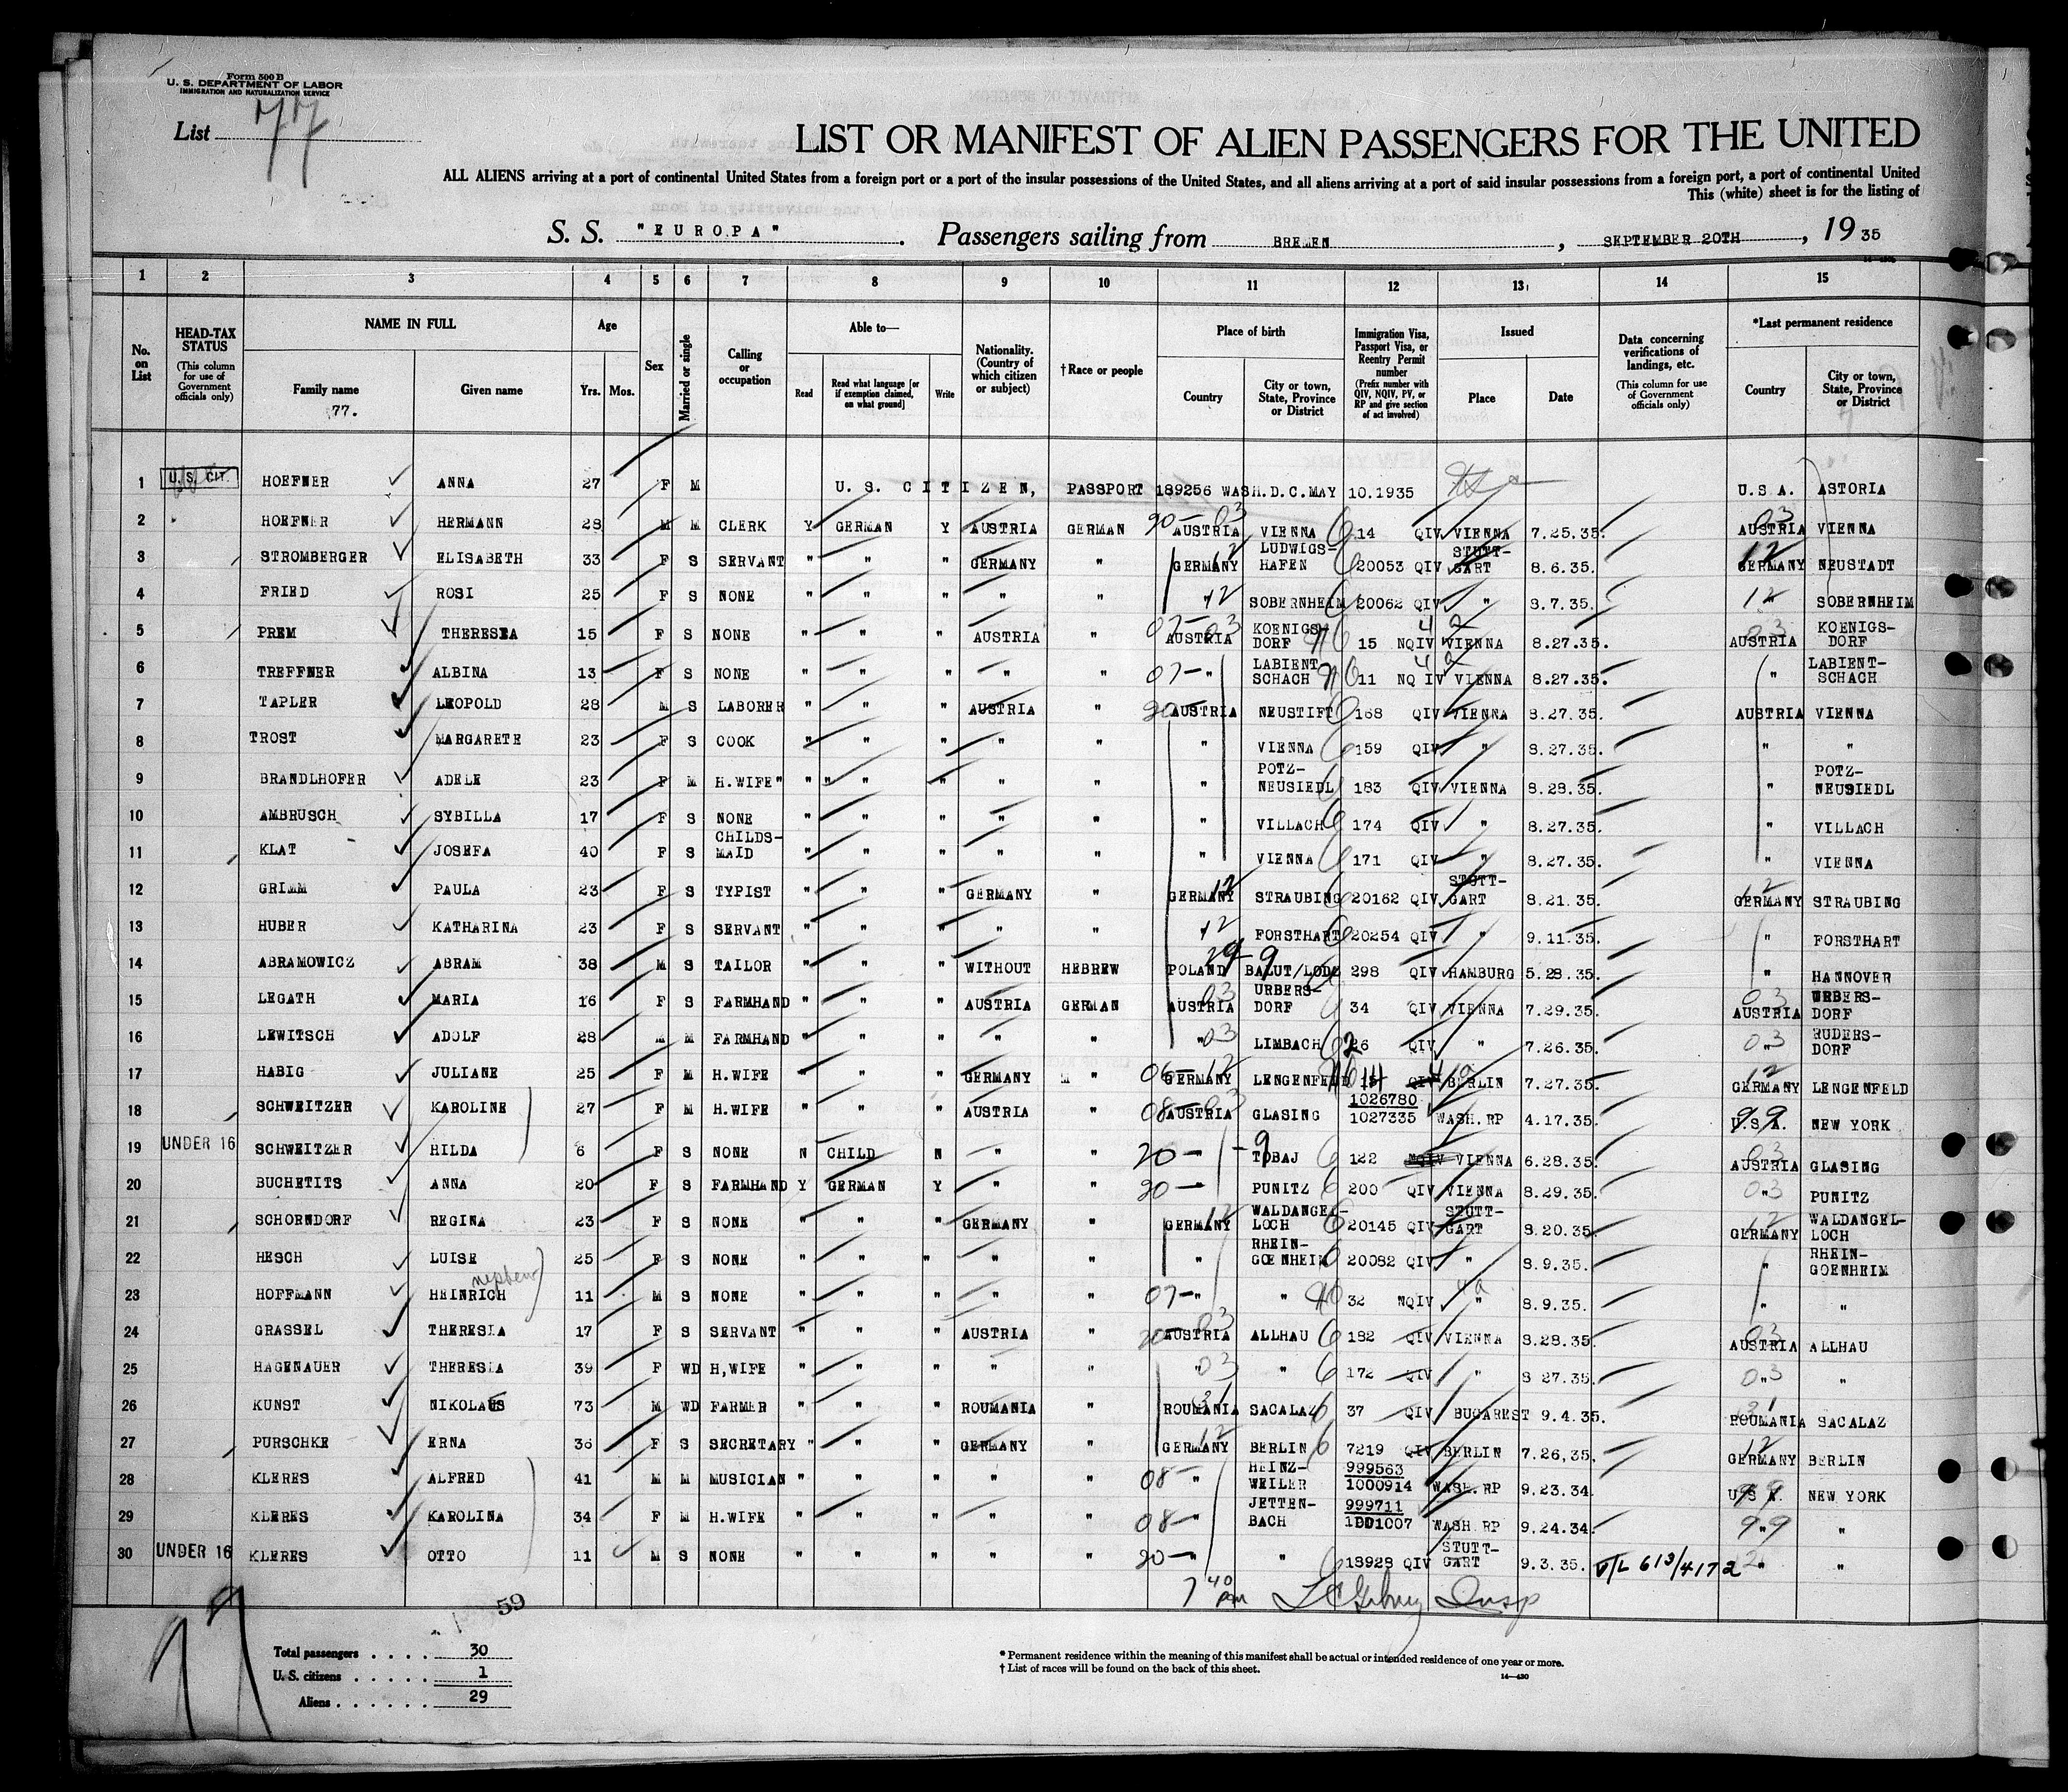 Form 500 B
U. S. DEPARTMENT OF LABOR
IMMIGRATION AND NATURALIZATION SERVICE
List 77
LIST OR MANIFEST OF ALIEN PASSENGERS FOR THE UNITED
ALL ALIENS arriving at a port of continental United States from a foreign port or a port of the insular possessions of the United States, and all aliens arriving at a port of said insular possessions from a foreign port, a port of continental United
This (white) sheet is for the listing of
S. S. "EUROPA". Passengers sailing from BREMEN, SEPTEMBER 20TH, 1935
1 2 3 4 5 6 7 8 9 10 11 12 13 14 15
No. on List
HEAD-TAX STATUS (This column for use of Government officials only)
NAME IN FULL
Family name 77.
Given name
Age Yrs. Mos.
Sex
Married or single
Calling or occupation
Able to— Read
Read what language [or if exemption claimed, on what ground]
Write
Nationality. (Country of which citizen or subject)
†Race or people
Place of birth
Country
City or town, State, Province or District
Immigration Visa, Passport Visa, or Reentry Permit number (Prefix number with QIV, NQIV, PV, or RP and give section of act involved)
Issued
Place
Date
Data concerning verifications of landings, etc. (This column for use of Government officials only)
*Last permanent residence
Country
City or town, State, Province or District
1 U.S. CIT. HOEFNER ANNA 27 F M U.S. CITIZEN, PASSPORT 189256 WASH.D.C.MAY 10.1935 U.S.A. ASTORIA
2 HOEFNER HERMANN 28 M M CLERK Y GERMAN Y AUSTRIA GERMAN 20-03 AUSTRIA VIENNA 6 14 QIV VIENNA 7.25.35. 03 AUSTRIA VIENNA
3 STROMBERGER ELISABETH 33 F S SERVANT " " " GERMANY " 12 GERMANY LUDWIGS-HAFEN 6 20053 QIV STUTT-GART 8.6.35. 12 GERMANY NEUSTADT
4 FRIED ROSI 25 F S NONE " " " " " 12 SOBERNHEIM 6 20062 QIV " 8.7.35. 12 " SOBERNHEIM
5 PREM THERESIA 15 F S NONE " " " AUSTRIA " 07-03 AUSTRIA KOENIGS-DORF 15 NQIV 4a VIENNA 8.27.35. 03 AUSTRIA KOENIGS-DORF
6 TREFFNER ALBINA 13 F S NONE " " " " " 07- " LABIENT SCHACH 11 NQ IV 4a VIENNA 8.27.35. " LABIENT-SCHACH
7 TAPLER LEOPOLD 28 M S LABORER " " " AUSTRIA " 20- AUSTRIA NEUSTIFT 6 168 QIV VIENNA 8.27.35. AUSTRIA VIENNA
8 TROST MARGARETE 23 F S COOK " " " " " " VIENNA 6 159 QIV " 8.27.35. " "
9 BRANDLHOFER ADELE 23 F M H.WIFE" " " " " " " " POTZ-NEUSIEDL 6 183 QIV VIENNA 8.28.35. " POTZ-NEUSIEDL
10 AMBRUSCH SYBILLA 17 F S NONE " " " " " " VILLACH 6 174 QIV " 8.27.35. " VILLACH
11 KLAT JOSEFA 40 F S CHILDS-MAID " " " " " " VIENNA 6 171 QIV " 8.27.35. " VIENNA
12 GRIMM PAULA 23 F S TYPIST " " " GERMANY " 12 GERMANY STRAUBING 6 20162 QIV STUTT-GART 8.21.35. 12 GERMANY STRAUBING
13 HUBER KATHARINA 23 F S SERVANT " " " " " 12 FORSTHART 6 20254 QIV " 9.11.35. " FORSTHART
14 ABRAMOWICZ ABRAM 38 M S TAILOR " " " WITHOUT HEBREW 29-9 POLAND BALUT/LODZ 298 QIV HAMBURG 5.28.35. " HANNOVER
15 LEGATH MARIA 16 F S FARMHAND " " " AUSTRIA GERMAN 03 AUSTRIA URBERS-DORF 6 34 QIV VIENNA 7.29.35. 03 AUSTRIA URBERS-DORF
16 LEWITSCH ADOLF 28 M M FARMHAND " " " " " 03 " LIMBACH 6 26 QIV " 7.26.35. 03 " RUDERS-DORF
17 HABIG JULIANE 25 F M H.WIFE " " " GERMANY " 06-12 GERMANY LENGENFELD QIV BERLIN 7.27.35. 12 GERMANY LENGENFELD
18 SCHWEITZER KAROLINE 27 F M H.WIFE " " " AUSTRIA " 08-03 AUSTRIA GLASING 1026780 1027335 WASH.RP 4.17.35. 99 U.S.A. NEW YORK
19 UNDER 16 SCHWEITZER HILDA 6 F S NONE N CHILD N " " 20- -9 TOBAJ 6 122 NQIV VIENNA 6.28.35. 03 AUSTRIA GLASING
20 BUCHETITS ANNA 20 F S FARMHAND Y GERMAN Y " " 20- " PUNITZ 6 200 QIV VIENNA 8.29.35. 03 " PUNITZ
21 SCHORNDORF REGINA 23 F S NONE " " " GERMANY " 12 GERMANY WALDANGEL-LOCH 6 20145 QIV STUTT-GART 8.20.35. 12 GERMANY WALDANGEL-LOCH
22 HESCH LUISE 25 F S NONE " " " " " " RHEIN-GOENHEIM 6 20082 QIV " 8.9.35. " RHEIN-GOENHEIM
23 HOFFMANN HEINRICH nephew 11 M S NONE " " " " " 07- " " 32 NQIV 4a " 8.9.35. " "
24 GRASSEL THERESIA 17 F S SERVANT " " " AUSTRIA " 20-03 AUSTRIA ALLHAU 6 182 QIV VIENNA 8.28.35. 03 AUSTRIA ALLHAU
25 HAGENAUER THERESIA 39 F WD H,WIFE " " " " " 03 " " 6 172 QIV " 8 27.35. 03 " "
26 KUNST NIKOLAUS 73 M WD FARMER " " " ROUMANIA " 31 ROUMANIA SACALAZ 6 37 QIV BUCAREST 9.4.35. 31 ROUMANIA SACALAZ
27 PURSCHKE ERNA 36 F S SECRETARY " " " GERMANY " 12 GERMANY BERLIN 6 7219 QIV BERLIN 7.26,35. 12 GERMANY BERLIN
28 KLERES ALFRED 41 M M MUSICIAN " " " " " 08- HEINZ-WEILER 999563 1000914 WASH.RP 9.23.34. 99 U.S.A. NEW YORK
29 KLERES KAROLINA 34 F M H.WIFE " " " " " 08- " JETTEN-BACH 999711 1001007 WASH RP 9.24.34. 99 " "
30 UNDER 16 KLERES OTTO 11 M S NONE " " " " " 20- " " 6 18928 QIV STUTT-GART 9.3.35. V/L 613/4172 " "
7 40 pm Insp
59
77
Total passengers .... 30
U. S. citizens ..... 1
Aliens ...... 29
* Permanent residence within the meaning of this manifest shall be actual or intended residence of one year or more.
† List of races will be found on the back of this sheet.
14—430